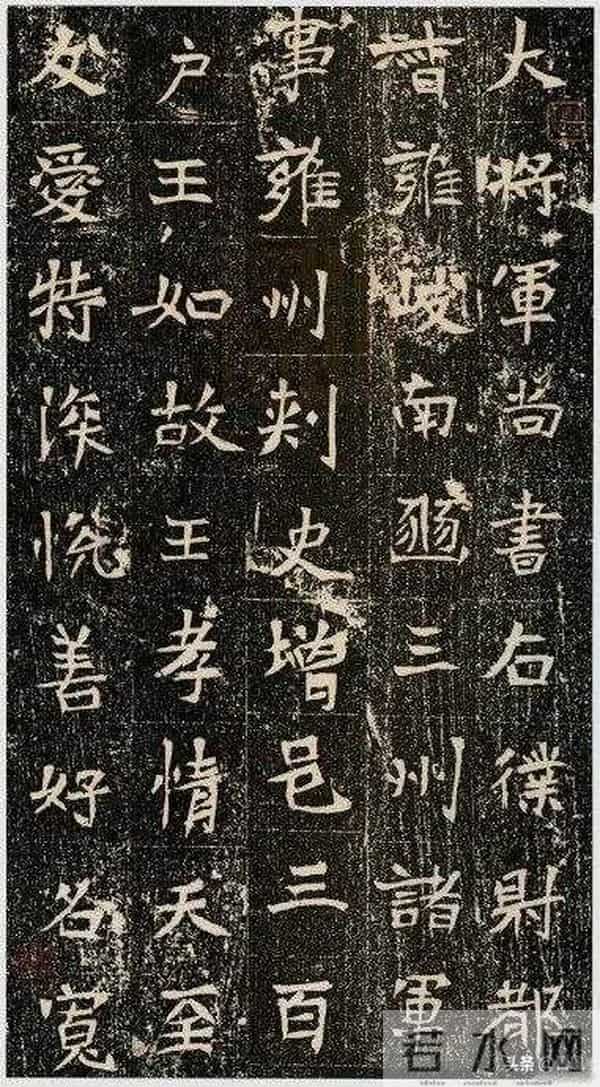 大將軍尚書右僕射都
督雍岐南豳三州諸軍
事雍州刾史增邑三百
户王如故王孝情天至
友愛特深悅善好名寬
若水网
头条